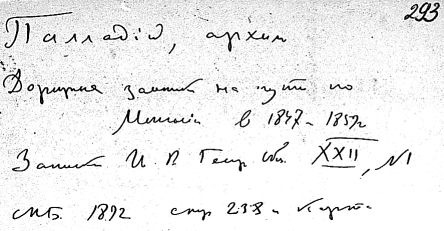 293
Палладий, архим
Дорожныя заметки на пути по
Монголіи в 1847 и 1859 г
Записки И. Р. Геогр. Общ. XXII, №1
СПБ. 1892 стр 238 и Карта